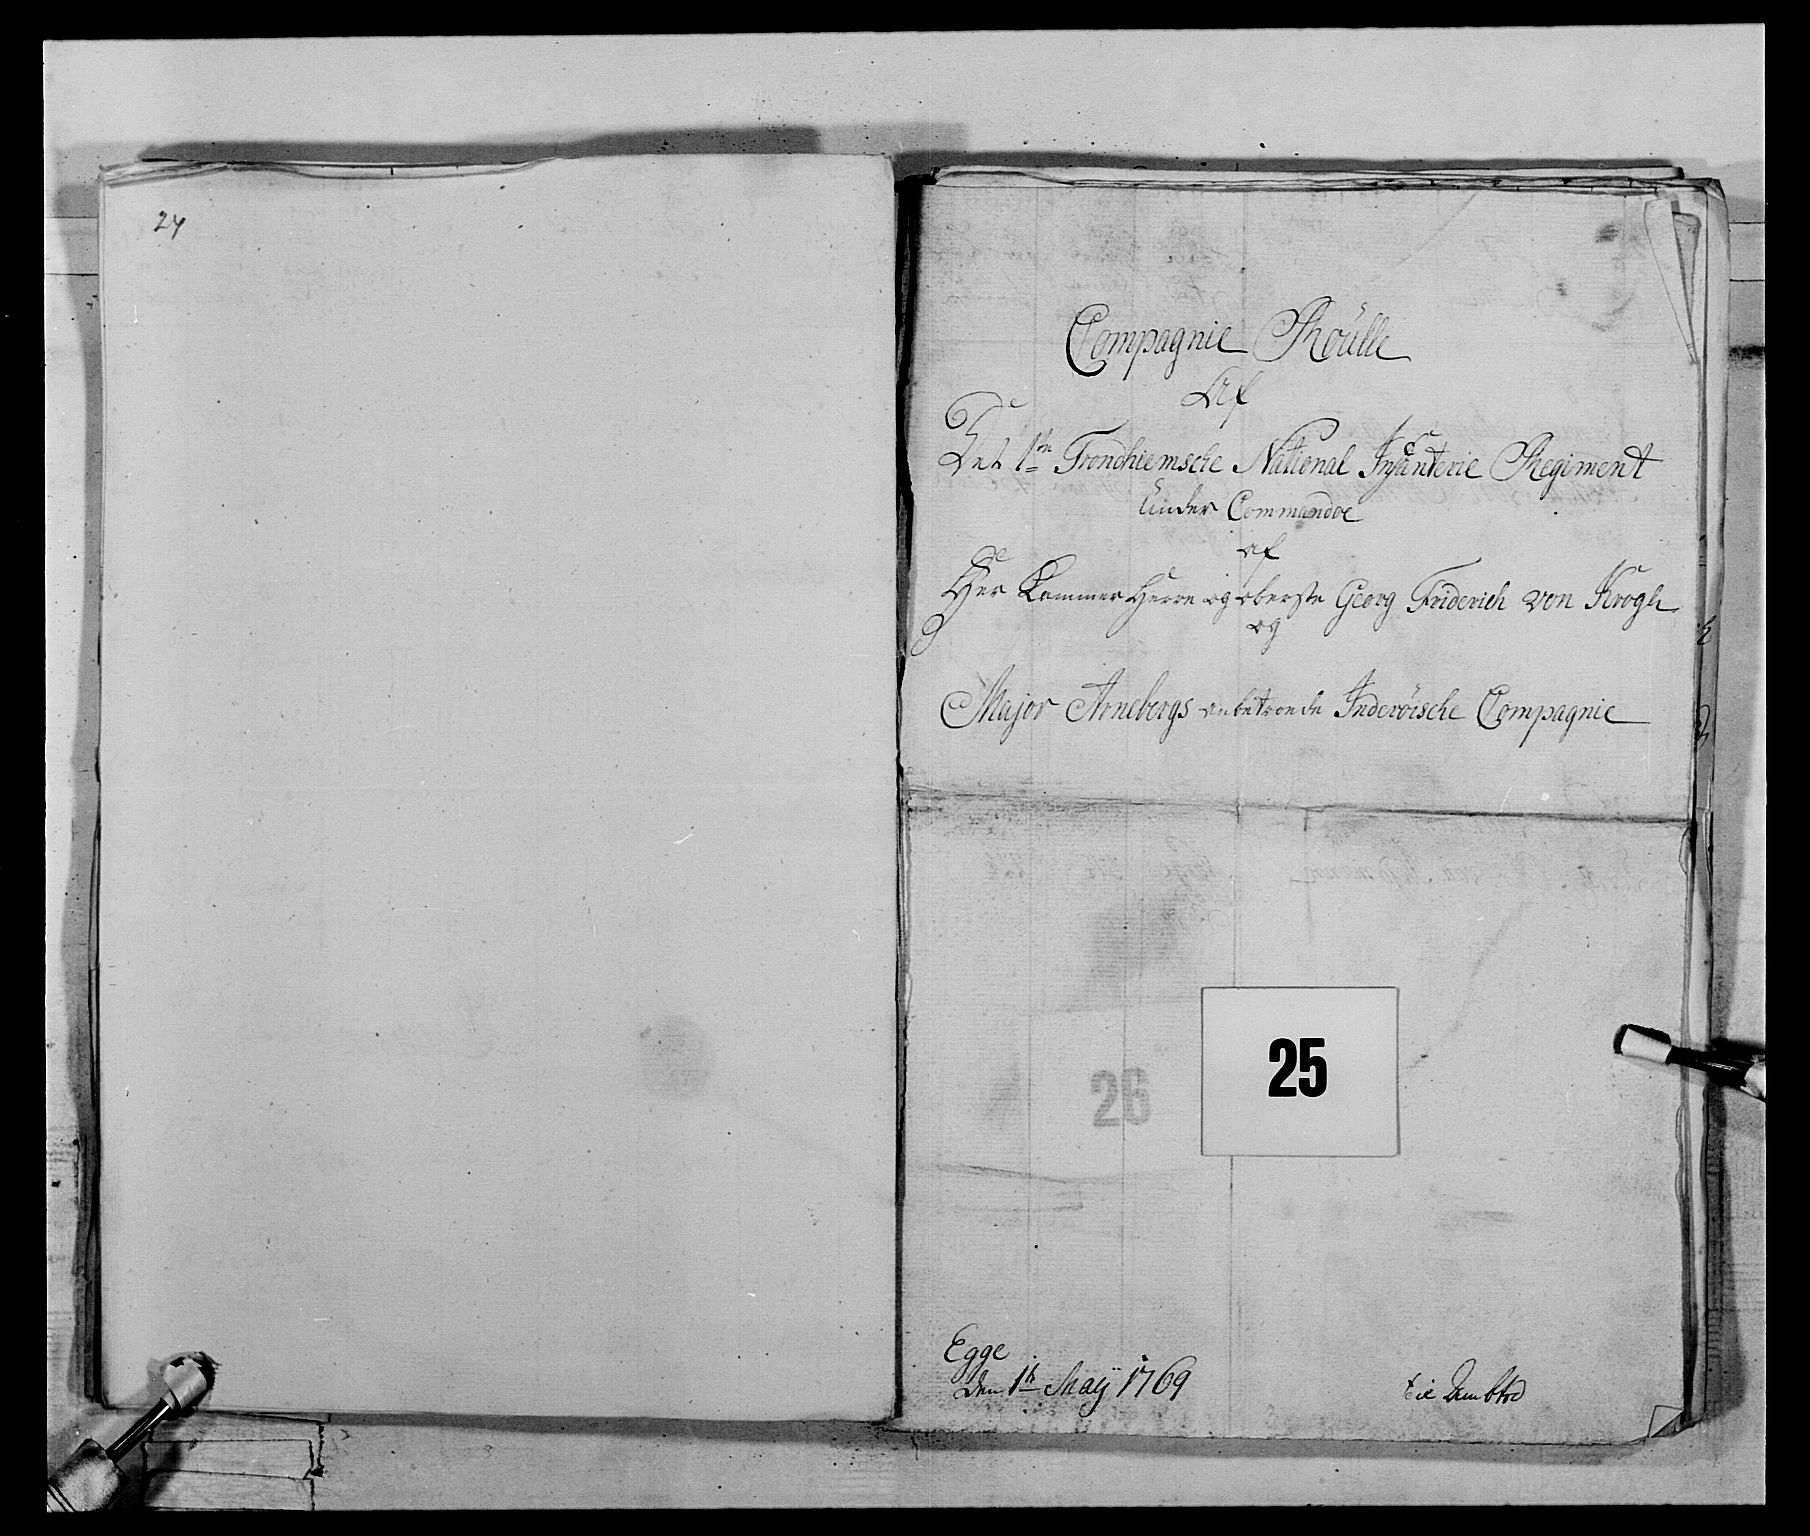 24
Compagnie Roülle
Af
Det 1ste Trondhiemsche National Infanterie Regiment
Under Commandoe
af
Her Kammer Herre og oberste Georg Friderich von Krogh
og
Major Arnebergs anbetroede Inderöische Compagnie
25
26
Egge
den 1te Maÿ 1769